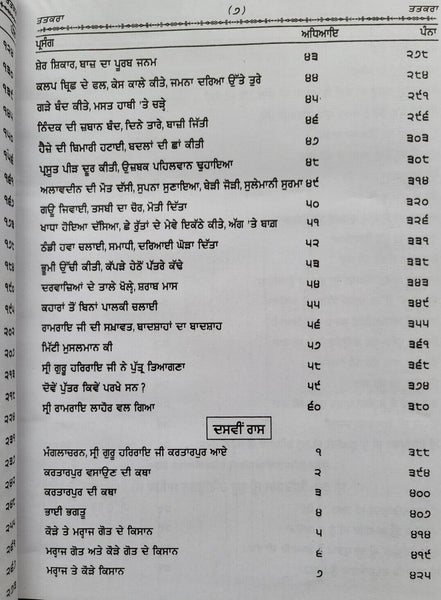 ਤਤਕਰਾ (੭) ਤਤਕਰਾ
ਪ੍ਰਸੰਗ ਅਧਿਆਇ ਪੰਨਾ
ਸ਼ੇਰ ਸ਼ਿਕਾਰ, ਬਾਜ਼ ਦਾ ਪੂਰਬ ਜਨਮ ੪੩ ੨੭੮
ਕਲਪ ਬ੍ਰਿਛ ਦੇ ਫਲ, ਕੇਸ ਕਾਲੇ ਕੀਤੇ, ਜਮਨਾ ਦਰਿਆ ਉੱਤੇ ਤੁਰੇ ੪੪ ੨੮੪
ਗੜੇ ਬੰਦ ਕੀਤੇ, ਮਸਤ ਹਾਥੀ 'ਤੇ ਚੜ੍ਹੇ ੪੫ ੨੯੧
ਨਿੰਦਕ ਦੀ ਜ਼ਬਾਨ ਬੰਦ, ਦਿਨੇ ਤਾਰੇ, ਬਾਜ਼ੀ ਜਿੱਤੀ ੪੬ ੨੯੬
ਹੈਜ਼ੇ ਦੀ ਬਿਮਾਰੀ ਹਟਾਈ, ਬਦਲਾਂ ਦੀ ਛਾਂ ਕੀਤੀ ੪੭ ੩੦੩
ਪ੍ਰਸੂਤ ਪੀੜ ਦੂਰ ਕੀਤੀ, ਉਜ਼ਬਕ ਪਹਿਲਵਾਨ ਢੁਹਾਇਆ ੪੮ ੩੦੮
ਅਲਾਵਦੀਨ ਦੀ ਮੌਤ ਦੱਸੀ, ਸੁਪਨਾ ਸੁਣਾਇਆ, ਬੇੜੀ ਜੋੜੀ, ਸੁਲੇਮਾਨੀ ਸੁਰਮਾ ੪੯ ੩੧੪
ਗਊ ਜਿਵਾਈ, ਤਸਬੀ ਦਾ ਚੋਰ, ਮੋਤੀ ਦਿੱਤਾ ੫੦ ੩੨੦
ਖਾਧਾ ਹੋਇਆ ਦੱਸਿਆ, ਛੇ ਰੁੱਤਾਂ ਦੇ ਮੇਵੇ ਇਕੱਠੇ ਕੀਤੇ, ਅੱਗ 'ਤੇ ਬਾਗ਼ ੫੧ ੩੨੬
ਠੰਡੀ ਹਵਾ ਚਲਾਈ, ਸਮਾਧੀ, ਦਰਿਆਈ ਘੋੜਾ ਦਿੱਤਾ ੫੨ ੩੩੨
ਭੂਮੀ ਉੱਚੀ ਕੀਤੀ, ਕੱਪੜੇ ਹੇਠੋਂ ਪੱਤਰੇ ਕੱਢੇ ੫੩ ੩੩੮
ਦਰਵਾਜ਼ਿਆਂ ਦੇ ਤਾਲੇ ਖੋਲ੍ਹੇ, ਸ਼ਰਾਬ ਮਾਸ ੫੪ ੩੪੩
ਕਹਾਰਾਂ ਤੋਂ ਬਿਨਾਂ ਪਾਲਕੀ ਚਲਾਈ ੫੫ ੩੪੯
ਰਾਮਰਾਇ ਜੀ ਦੀ ਸਮਾਵਤ, ਬਾਦਸ਼ਾਹਾਂ ਦਾ ਬਾਦਸ਼ਾਹ ੫੬ ੩੫੫
ਮਿੱਟੀ ਮੁਸਲਮਾਨ ਕੀ ੫੭ ੩੬੧
ਸ੍ਰੀ ਗੁਰੂ ਹਰਿਰਾਇ ਜੀ ਨੇ ਪੁੱਤ੍ਰ ਤਿਆਗਣਾ ੫੮ ੩੬੭
ਦੋਵੇਂ ਪੁੱਤਰ ਕਿਵੇਂ ਪਰਖੇ ਸਨ ? ੫੯ ੩੭੪
ਸ੍ਰੀ ਰਾਮਰਾਇ ਲਾਹੌਰ ਵਲ ਗਿਆ ੬੦ ੩੮੦
ਦਸਵੀਂ ਰਾਸ
ਮੰਗਲਾਚਰਨ, ਸ੍ਰੀ ਗੁਰੂ ਹਰਿਰਾਇ ਜੀ ਕਰਤਾਰਪੁਰ ਆਏ ੧ ੩੮੮
ਕਰਤਾਰਪੁਰ ਵਸਾਉਣ ਦੀ ਕਥਾ ੨ ੩੯੪
ਕਰਤਾਰਪੁਰ ਦੀ ਕਥਾ ੩ ੪੦੦
ਭਾਈ ਭਗਤੂ ੪ ੪੦੭
ਕੌੜੇ ਤੇ ਮਰ੍ਹਾਜ ਗੋਤ ਦੇ ਕਿਸਾਨ ੫ ੪੧੪
ਮਰ੍ਹਾਜ ਗੋਤ ਅਤੇ ਕੌੜੇ ਗੋਤ ਦੇ ਕਿਸਾਨ ੬ ੪੧੯
ਮਰ੍ਹਾਜ ਤੇ ਕੌੜੇ ਕਿਸਾਨ ੭ ੪੨੫